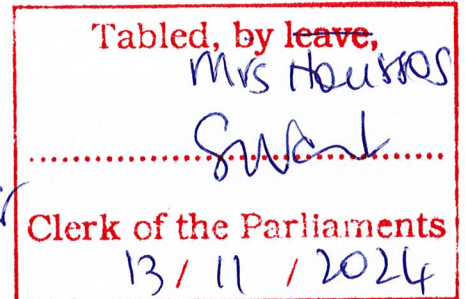 Tabled, by leave,
Mrs Houssos
Clerk of the Parliaments
13 / 11 / 2024